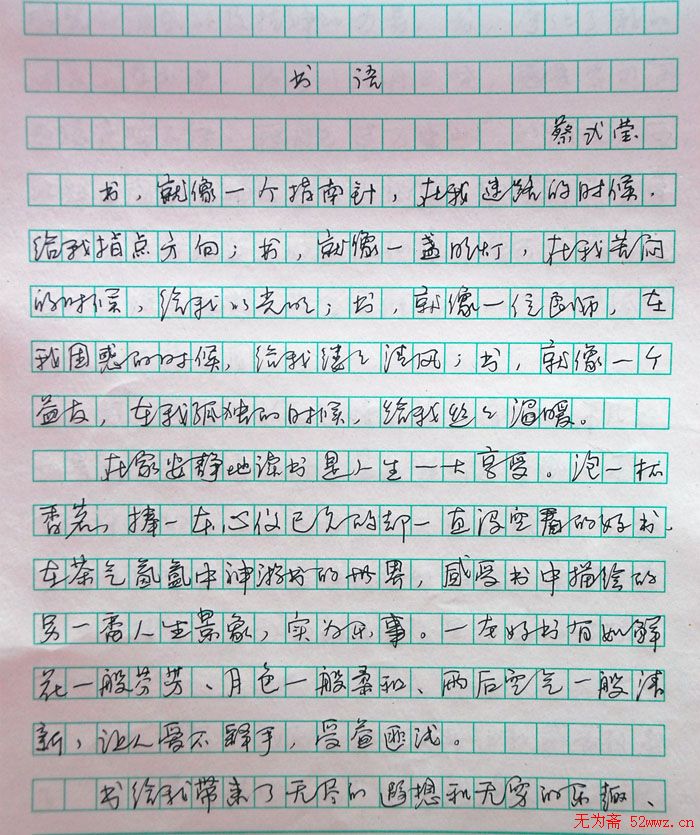 书 语
蔡弍莹
书，就像一个指南针，在我迷路的时候，
给我指点方向；书，就像一盏明灯，在我苦闷
的时候，给我以光明；书，就像一位医师，在
我困惑的时候，给我缕々清风；书，就像一个
益友，在我孤独的时候，给我丝々温暖。
在家安静地读书是人生一大享受。泡一杯
香茗，捧一本心仪已久的却一直没空看的好书，
在茶气氤氲中神游书的世界，感受书中描绘的
另一番人生景象，实为乐事。一本好书有如鲜
花一般芬芳、月色一般柔和、雨后空气一般清
新，让人爱不释手，受益匪浅。
书给我带来了无尽的遐想和无穷的乐趣、
无为斋 52wwz.cn